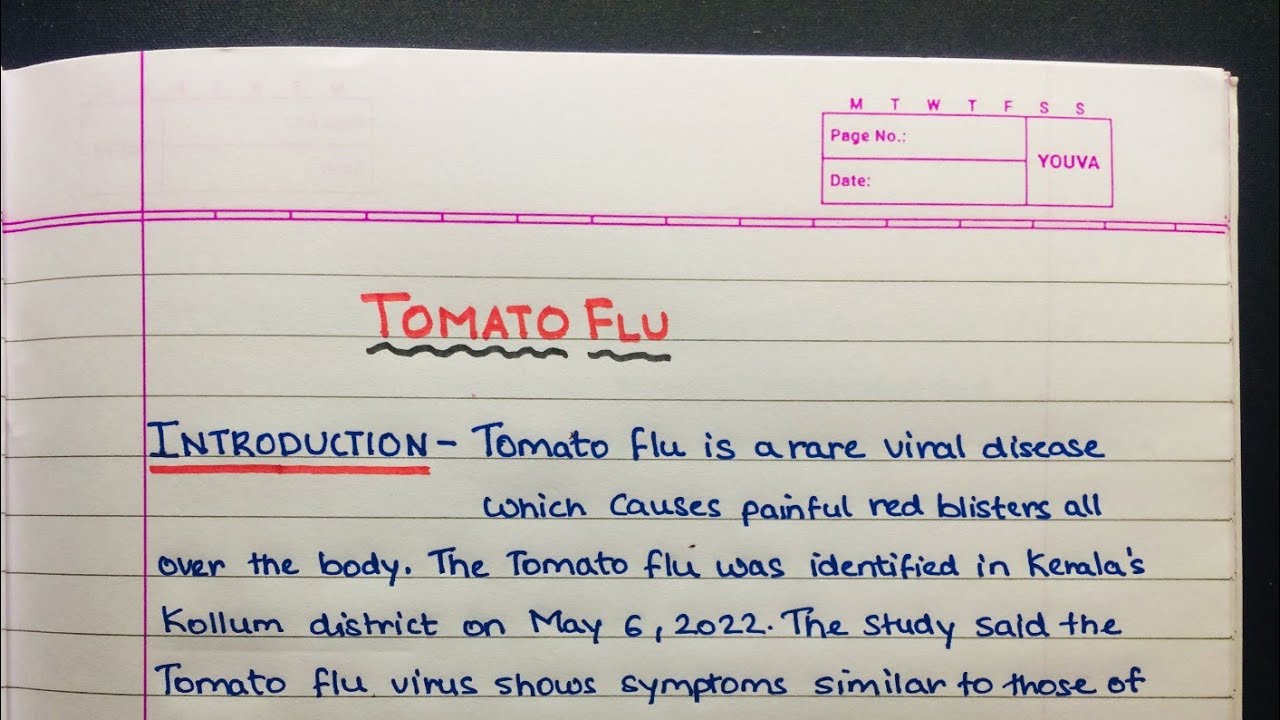 M T W T F S S
Page No.:
YOUVA
Date:
TOMATO FLU
INTRODUCTION - Tomato flu is a rare viral disease
which causes painful red blisters all
over the body. The Tomato flu was identified in Kerala's
Kollum district on May 6, 2022. The study said the
Tomato flu virus shows symptoms similar to those of